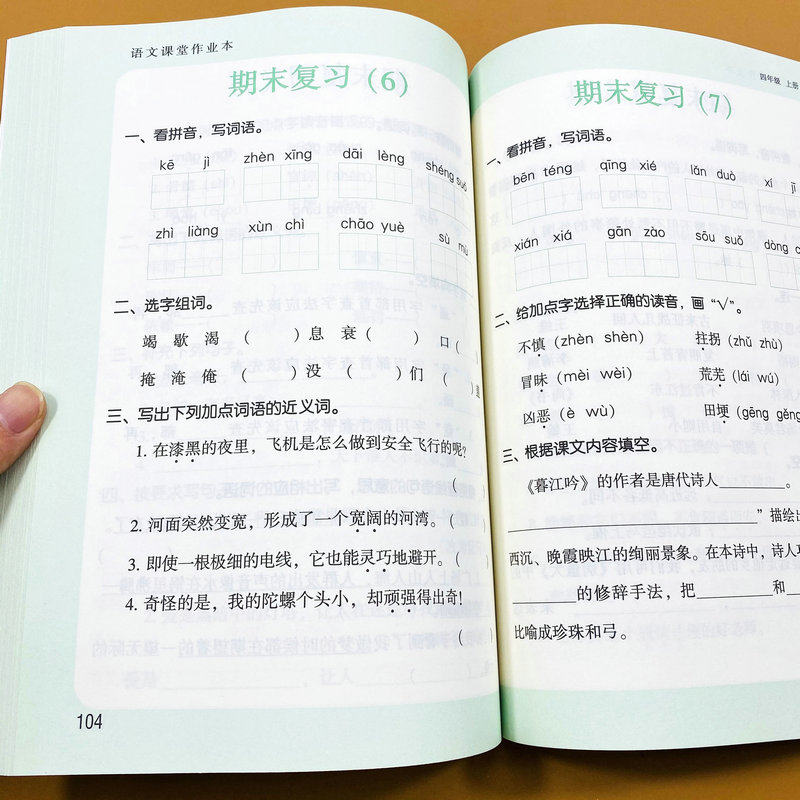 语文课堂作业本
期末复习（6）
一、看拼音，写词语。
kē jì zhèn xīng dāi lèng shéng suǒ
zhì liàng xùn chì chāo yuè sù mù
二、选字组词。
竭 歇 渴 （ ）息 衰（ ） 口（
掩 淹 俺 （ ）没 （ ）们 （
三、写出下列加点词语的近义词。
1. 在漆黑的夜里，飞机是怎么做到安全飞行的呢？
（ ）
2. 河面突然变宽，形成了一个宽阔的河湾。（ ）
3. 即使一根极细的电线，它也能灵巧地避开。（ ）
4. 奇怪的是，我的陀螺个头小，却顽强得出奇！
（ ）
104
四年级 上册
期末复习（7）
一、看拼音，写词语。
bēn téng qīng xié lǎn duò xí jī
xián xiá gān zào sōu suǒ dòng
二、给加点字选择正确的读音，画“√”。
不慎（zhèn shèn） 拄拐（zhǔ zhù）
冒昧（mèi wèi） 荒芜（lái wú）
凶恶（è wù） 田埂（gēng gěng
三、根据课文内容填空。
《暮江吟》的作者是唐代诗人________。
________________”描绘出
西沉、晚霞映江的绚丽景象。在本诗中，诗人巧
________的修辞手法，把________和
比喻成珍珠和弓。